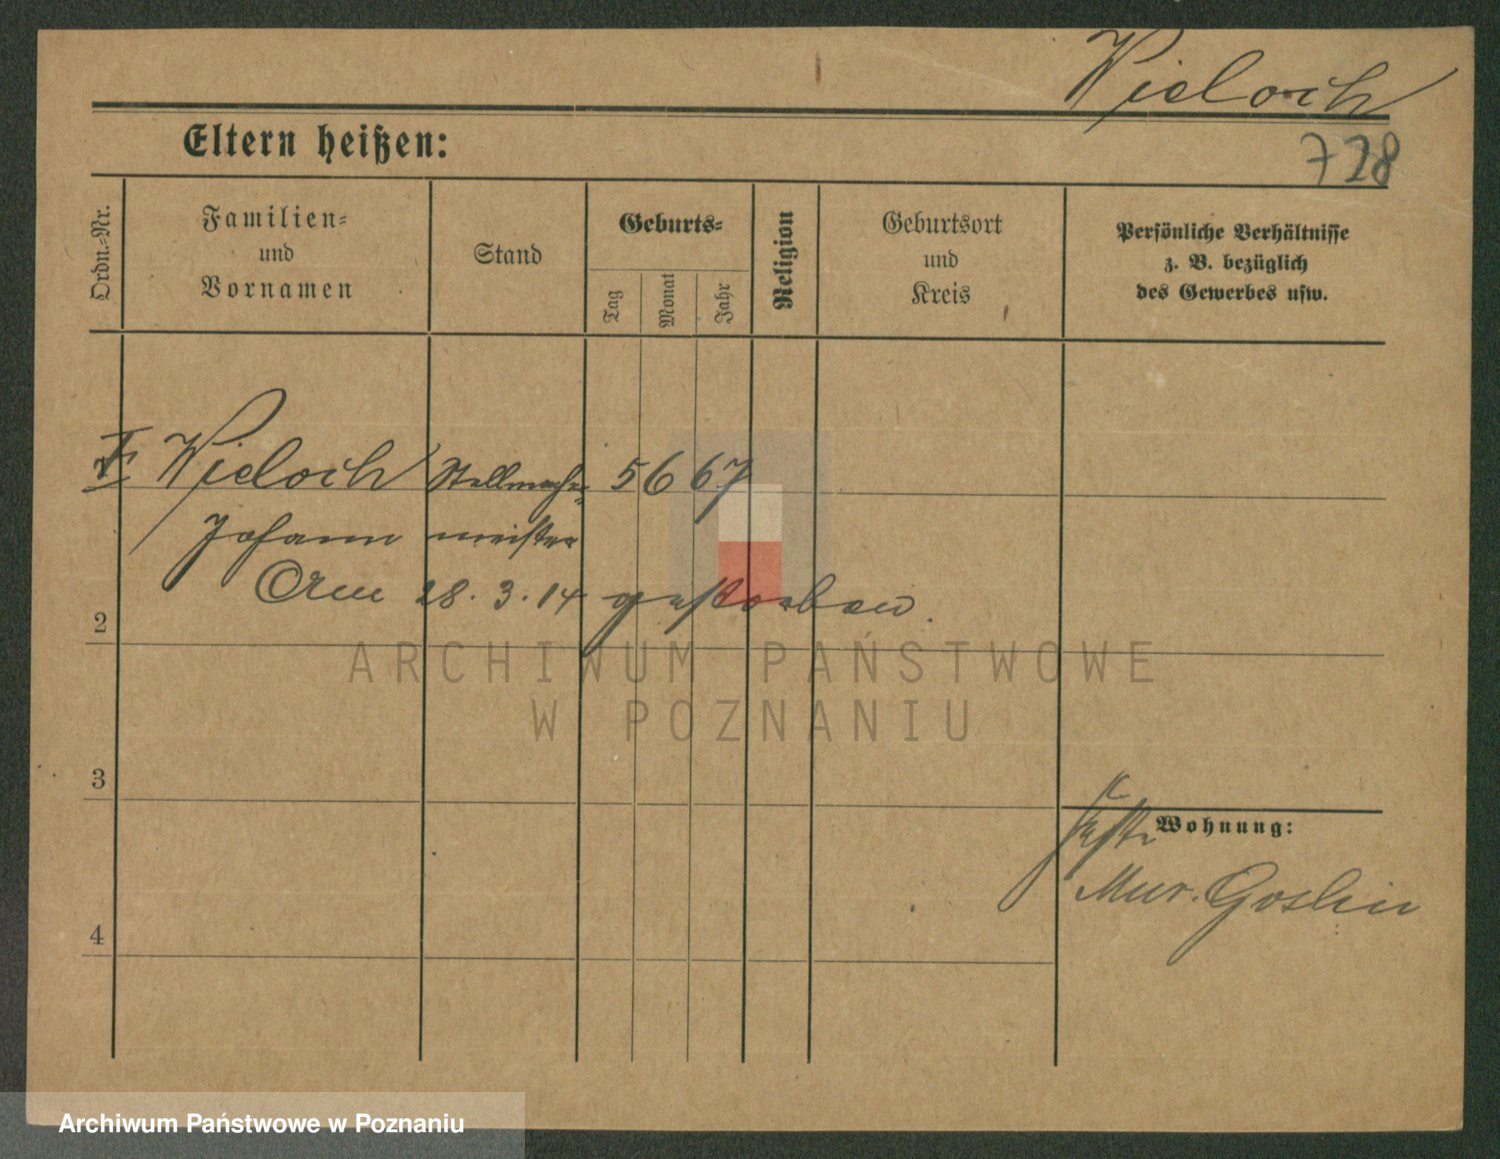 Wieloch
Eltern heißen:
728
Ordn.-Nr.
Familien-
und
Vornamen
Stand
Geburts-
Tag
Monat
Jahr
Religion
Geburtsort
und
Kreis
Persönliche Verhältnisse
z. B. bezüglich
des Gewerbes usw.
Wieloch Stellmacher 5 6 67
Johann meister
Am 28. 3. 14 gestorben.
2
ARCHIWUM PAŃSTWOWE
W POZNANIU
3
Wohnung:
Mur. Goslin
4
Archiwum Państwowe w Poznaniu